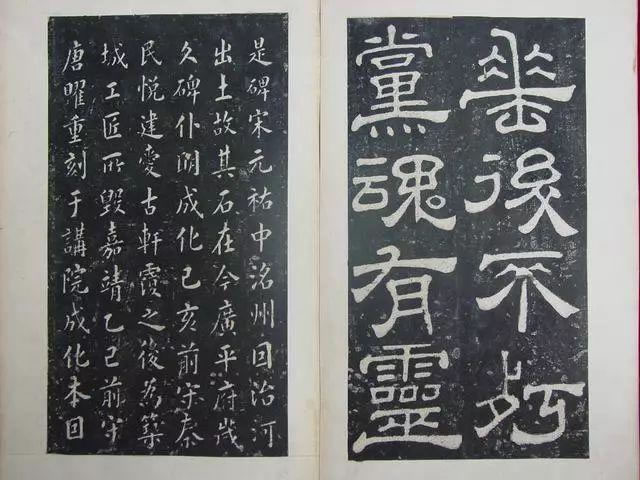 垂後不朽
黨魂有靈
是碑宋元祐中洺州因治河
出土故其石在今廣平府歲
久碑仆明成化己亥前守秦
民悅建愛古軒覆之後為築
城工匠所毀嘉靖乙巳前守
唐曜重刻于講院成化本因